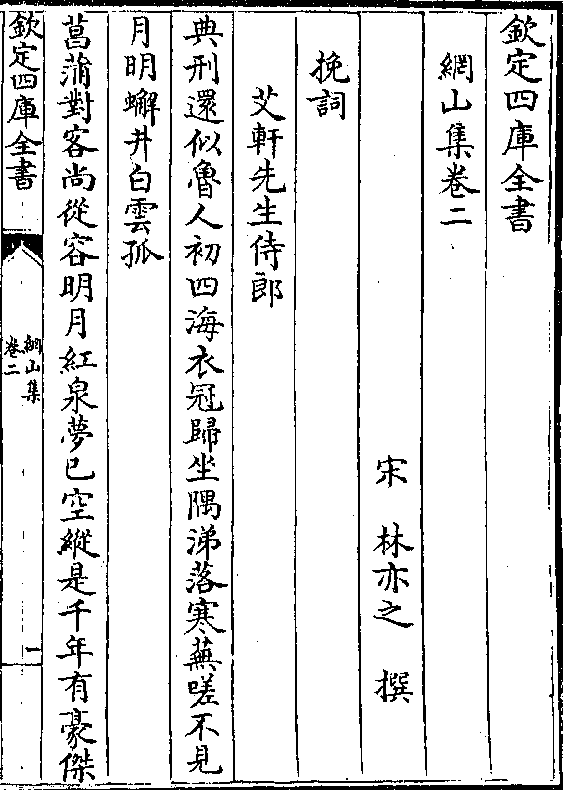 欽定四庫全書
網山集卷二
宋　林亦之　撰
挽詞
艾軒先生侍郎
典刑還似魯人初四海衣冠歸坐隅涕落寒蕪嗟不見
月明蠏井白雲孤
菖蒲對客尚從容明月紅泉夢已空縱是千年有豪傑
欽定四庫全書
網山集
卷二
一